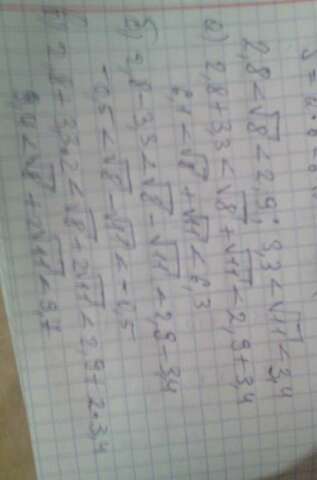 2,8 < √8 < 2,9; 3,3 < √11 < 3,4
а) 2,8 + 3,3 < √8 + √11 < 2,9 + 3,4
6,1 < √8 + √11 < 6,3
б) 2,8 - 3,3 < √8 - √11 < 2,9 - 3,4
-0,5 < √8 - √11 < -0,5
2,8 + 3,3·2 < √8 + 2√11 < 2,9 + 2·3,4
9,4 < √8 + 2√11 < 9,7